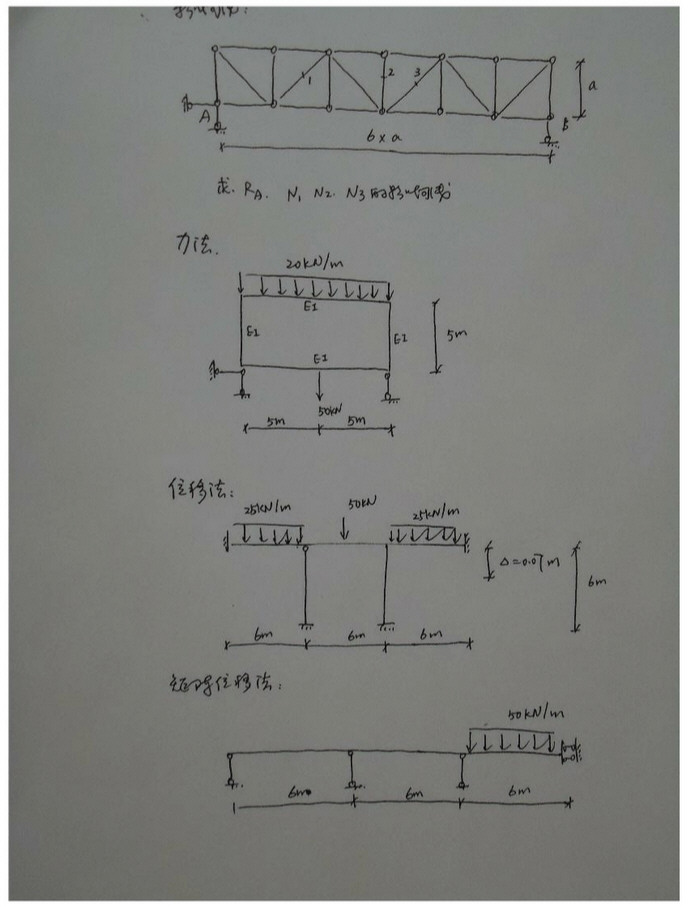 1
2
3
a
A
B
6×a
求. RA. N1 N2. N3 的影响线
力法.
20kN/m
EI
EI
EI
5m
EI
50kN
5m 5m
位移法:
25kN/m 50kN 25kN/m
Δ=0.07m
6m
6m 6m 6m
矩阵位移法:
50kN/m
6m 6m 6m